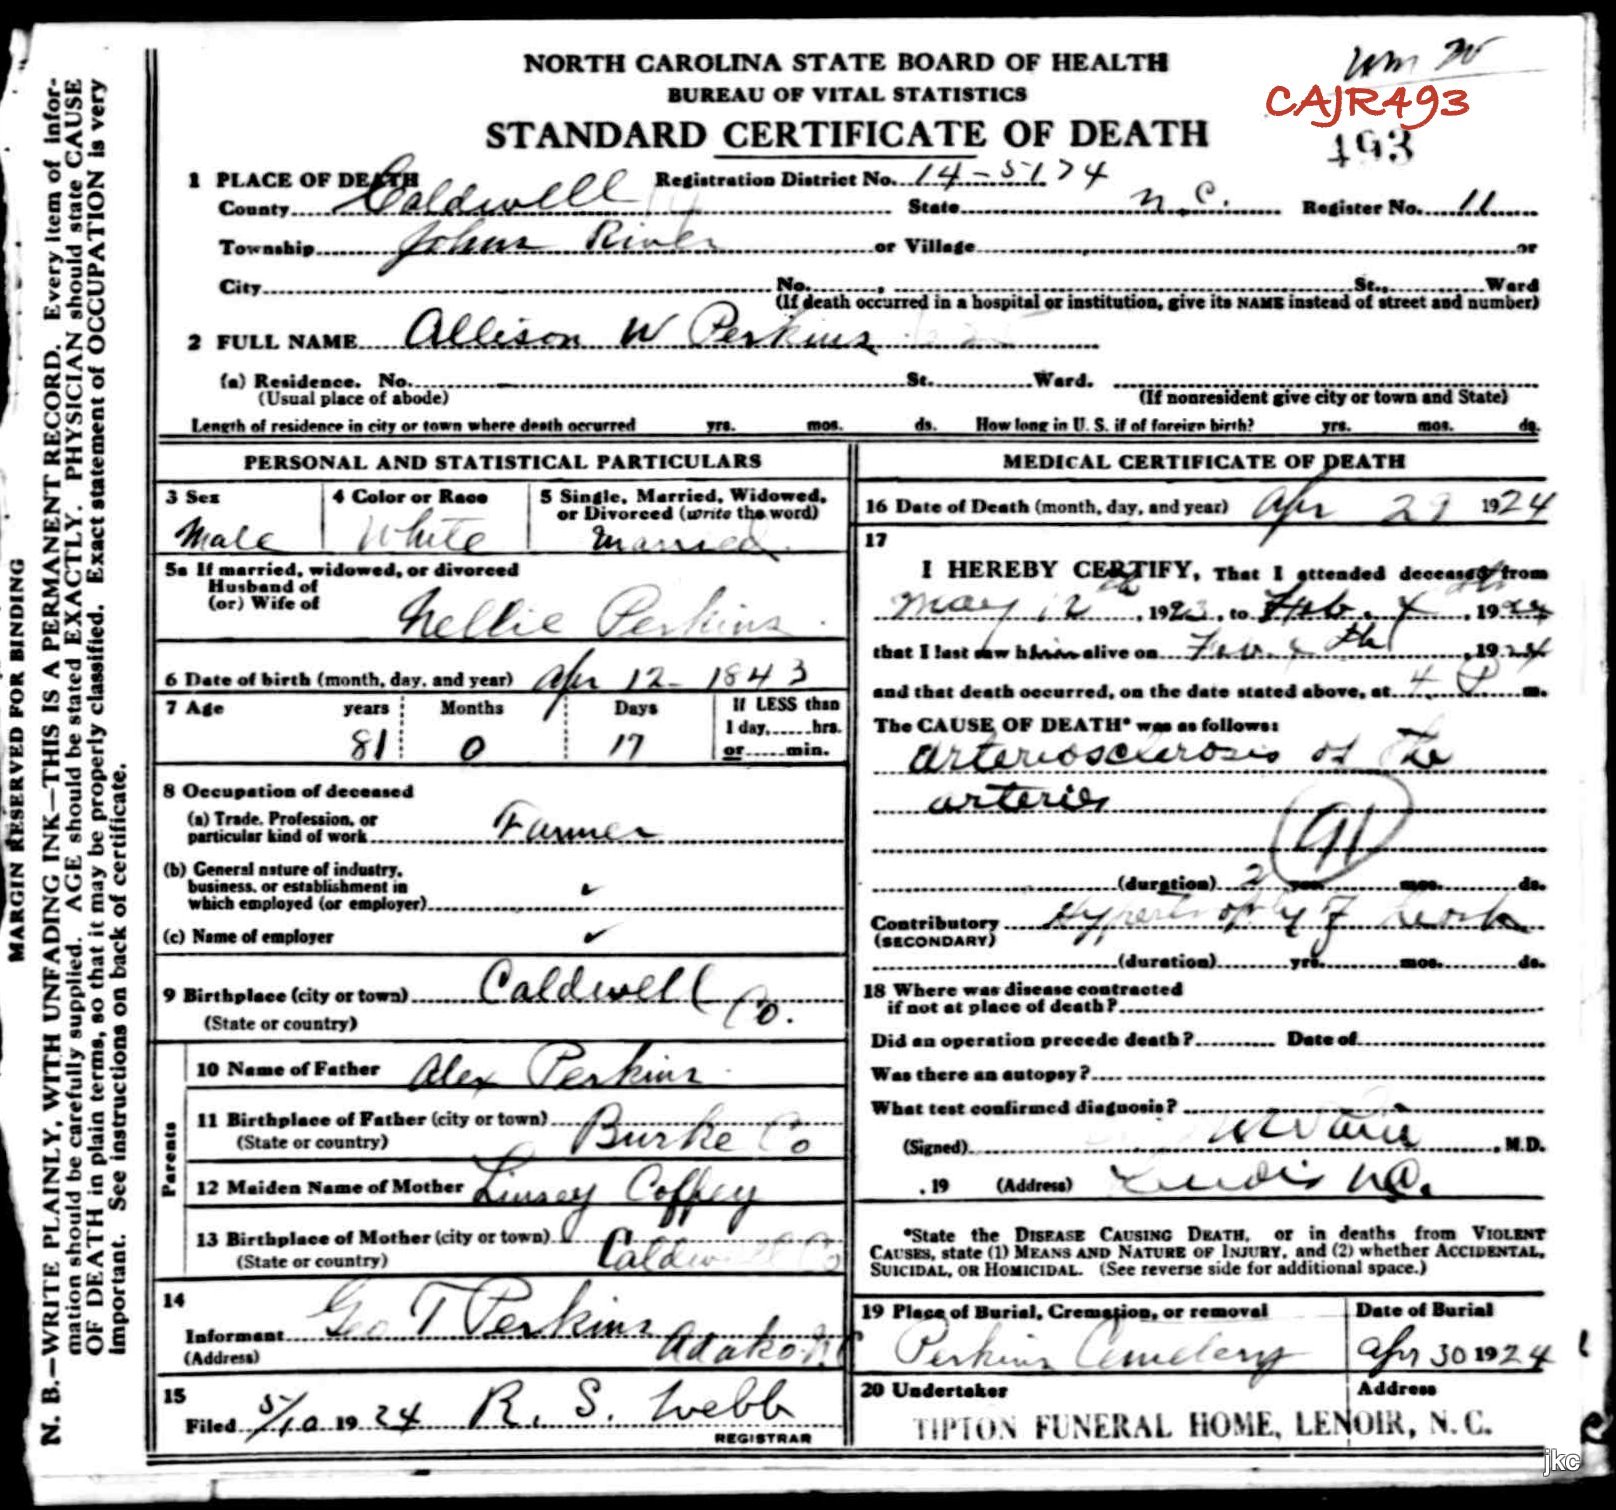 NORTH CAROLINA STATE BOARD OF HEALTH
BUREAU OF VITAL STATISTICS
STANDARD CERTIFICATE OF DEATH
Wm W
CAJR493
493
1 PLACE OF DEATH Registration District No. 14-5174
County Caldwell State N.C. Register No. 11
Township Johns River or Village or
City No. St., Ward
(If death occurred in a hospital or institution, give its NAME instead of street and number)
2 FULL NAME Allison W Perkins
(a) Residence. No. St. Ward.
(Usual place of abode) (If nonresident give city or town and State)
Length of residence in city or town where death occurred yrs. mos. ds. How long in U. S. if of foreign birth? yrs. mos. ds.
PERSONAL AND STATISTICAL PARTICULARS
3 Sex 4 Color or Race 5 Single, Married, Widowed, or Divorced (write the word)
Male White Married
5a If married, widowed, or divorced
Husband of
(or) Wife of Nellie Perkins
6 Date of birth (month, day, and year) Apr 12 - 1843
7 Age years Months Days If LESS than
1 day, hrs.
81 0 17 or min.
8 Occupation of deceased
(a) Trade, Profession, or
particular kind of work Farmer
(b) General nature of industry,
business, or establishment in ✓
which employed (or employer)
(c) Name of employer ✓
9 Birthplace (city or town) Caldwell Co.
(State or country)
Parents
10 Name of Father Alex Perkins
11 Birthplace of Father (city or town) Burke Co
(State or country)
12 Maiden Name of Mother Linsey Coffey
13 Birthplace of Mother (city or town) Caldwell Co
(State or country)
14
Informant Geo T Perkins
(Address) Adako N C
15
Filed 5/10 1924 R. S. Webb
REGISTRAR
MEDICAL CERTIFICATE OF DEATH
16 Date of Death (month, day, and year) Apr 29 1924
17
I HEREBY CERTIFY, That I attended deceased from
May 12th, 1923, to Feb. th, 1924
that I last saw him alive on Feb th, 1924
and that death occurred, on the date stated above, at 4 P m.
The CAUSE OF DEATH* was as follows:
Arteriosclerosis of the
arteries
91
(duration) 2 yrs. mos. ds.
Contributory Hypertrophy of heart
(SECONDARY)
(duration) yrs. mos. ds.
18 Where was disease contracted
if not at place of death?
Did an operation precede death? Date of
Was there an autopsy?
What test confirmed diagnosis?
(Signed) , M.D.
, 19 (Address) Lenoir N.C.
*State the DISEASE CAUSING DEATH, or in deaths from VIOLENT
CAUSES, state (1) MEANS AND NATURE OF INJURY, and (2) whether ACCIDENTAL,
SUICIDAL, OR HOMICIDAL. (See reverse side for additional space.)
19 Place of Burial, Cremation, or removal Date of Burial
Perkins Cemetery Apr 30 1924
20 Undertaker Address
TIPTON FUNERAL HOME, LENOIR, N. C.
MARGIN RESERVED FOR BINDING
N. B.—WRITE PLAINLY, WITH UNFADING INK—THIS IS A PERMANENT RECORD. Every item of infor-
mation should be carefully supplied. AGE should be stated EXACTLY. PHYSICIAN should state CAUSE
OF DEATH in plain terms, so that it may be properly classified. Exact statement of OCCUPATION is very
important. See instructions on back of certificate.
jkc